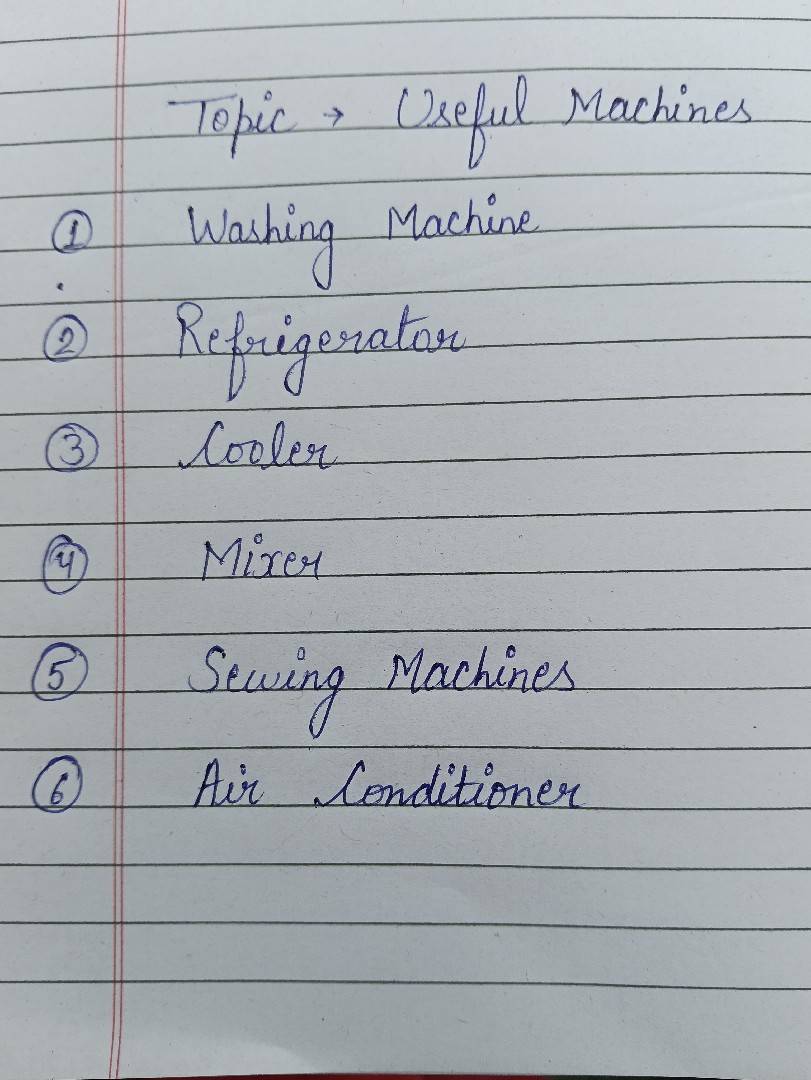 Topic → Useful Machines
① Washing Machine
② Refrigerator
③ Cooler
④ Mixer
⑤ Sewing Machines
⑥ Air Conditioner